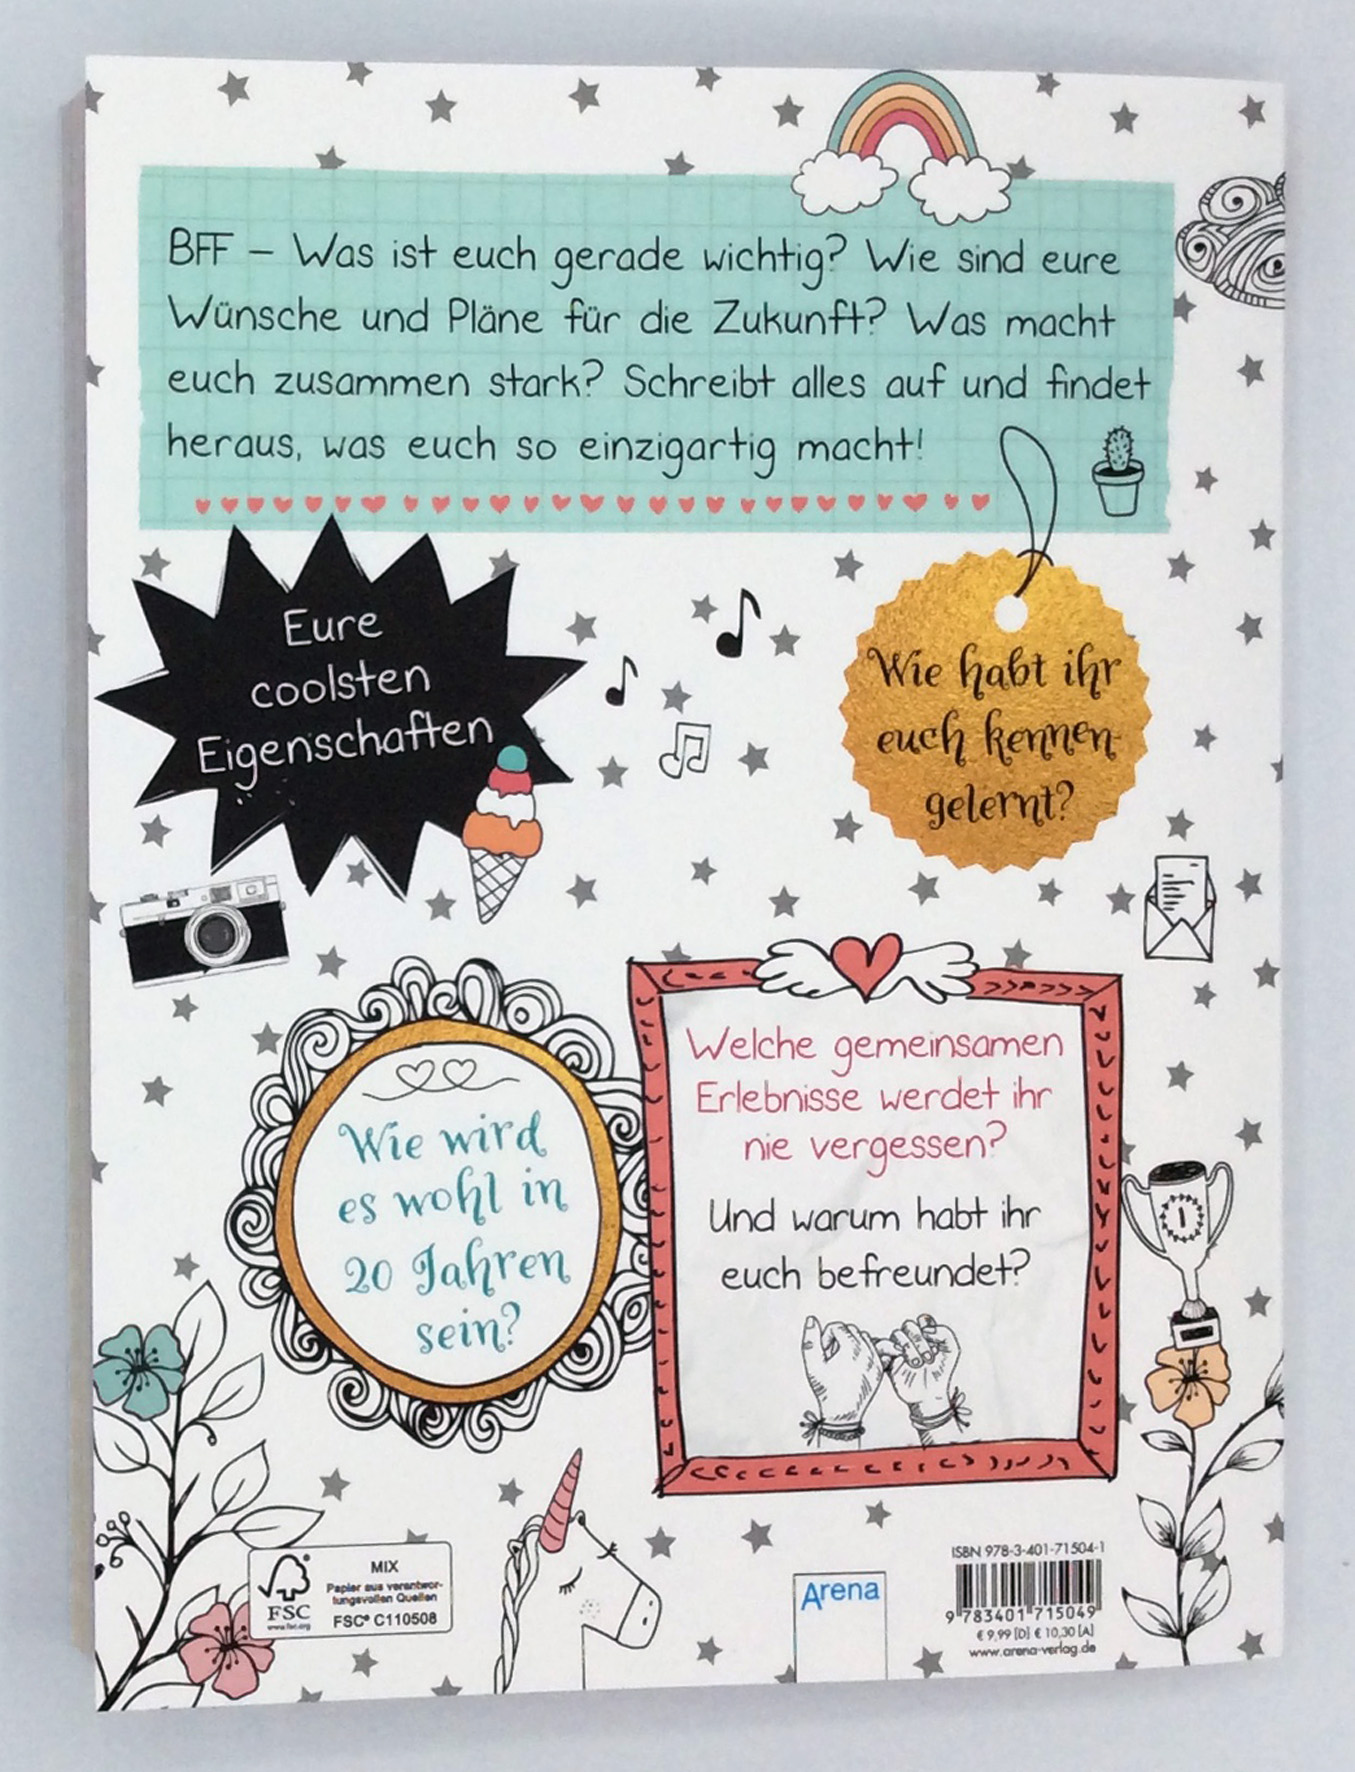 BFF – Was ist euch gerade wichtig? Wie sind eure
Wünsche und Pläne für die Zukunft? Was macht
euch zusammen stark? Schreibt alles auf und findet
heraus, was euch so einzigartig macht!
Eure
coolsten
Eigenschaften
Wie habt ihr
euch kennen-
gelernt?
Wie wird
es wohl in
20 Jahren
sein?
Welche gemeinsamen
Erlebnisse werdet ihr
nie vergessen?
Und warum habt ihr
euch befreundet?
1
FSC
www.fsc.org
MIX
Papier aus verantwor-
tungsvollen Quellen
FSC® C110508
Arena
ISBN 978-3-401-71504-1
9 783401 715049
€ 9,99 [D] € 10,30 [A]
www.arena-verlag.de